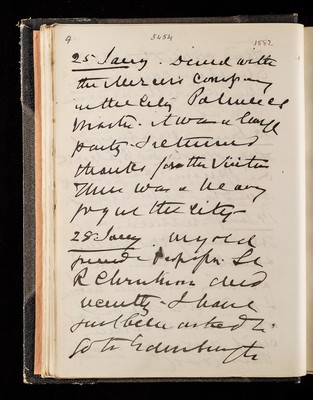 4 5454 1882
25 Jany. Dined with
the Mercers Company
in the City
Master. it was a large
party. I returned
thanks for the Visitors
There was a heavy
fog in the City -
28 Jany. my old
friend Sr
R Christison died
recently. I have
just been asked to
go to Edinburgh